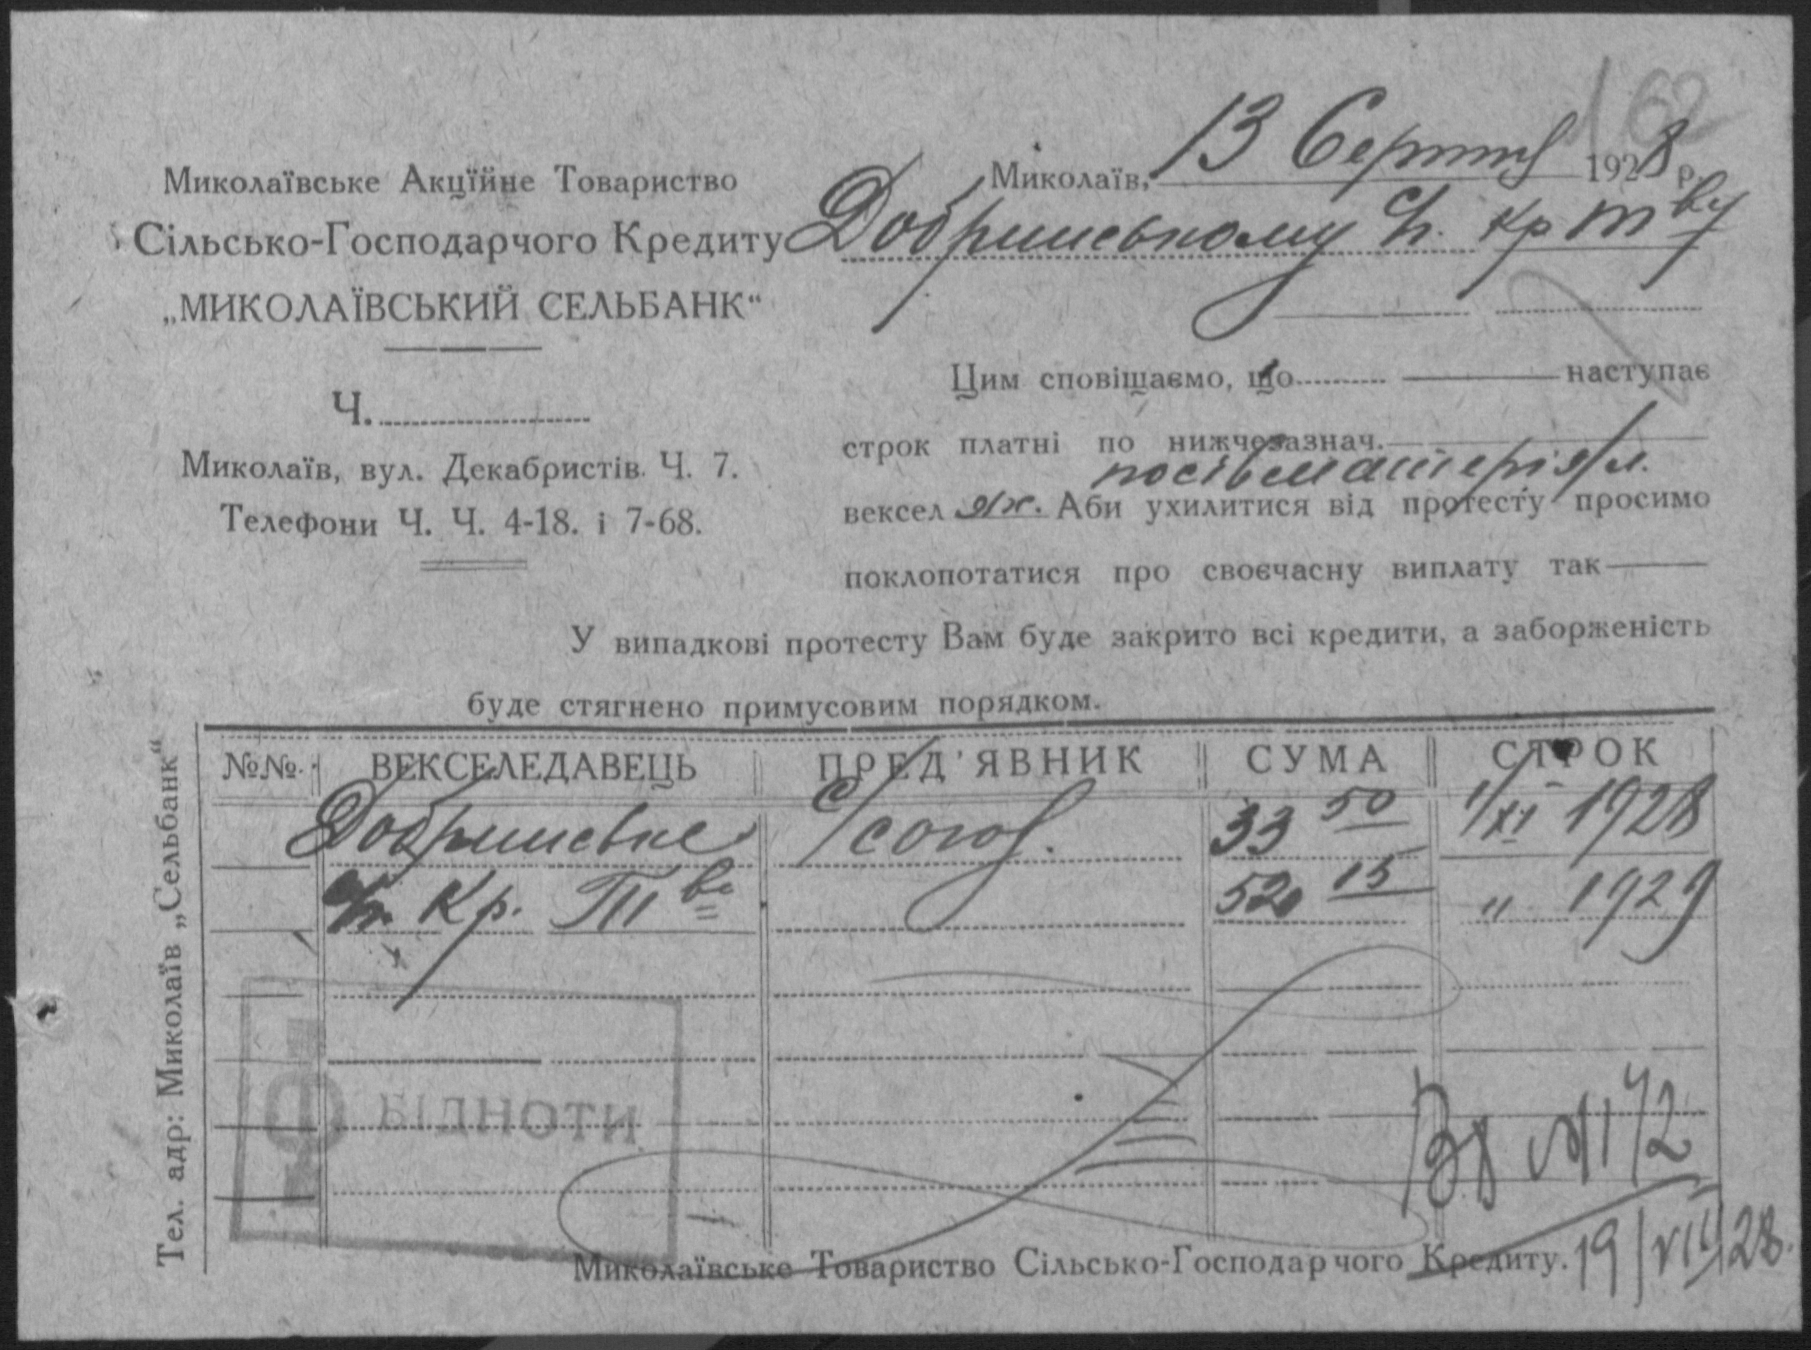 162
Миколаївське Акцїйне Товариство
Сільсько-Господарчого Кредиту
„МИКОЛАЇВСЬКИЙ СЕЛЬБАНК“
Ч.
Миколаїв, вул. Декабристів Ч. 7.
Телефони Ч. Ч. 4-18. і 7-68.
Миколаїв, 13 Серпня 1928 р.
Добринському с/г. кр т-ву
Цим сповіщаємо, що наступає
строк платні по нижчезазнач.
посівматеріял.
вексел ях. Аби ухилитися від протесту просимо
поклопотатися про своєчасну виплату так
У випадкові протесту Вам буде закрито всі кредити, а заборженість
буде стягнено примусовим порядком.
№№ ВЕКСЕЛЕДАВЕЦЬ ПРЕД'ЯВНИК СУМА СТРОК
Добринське с/союз. 33 50 1/XI 1928
с/г. Кр. Т-во 520 15 " 1929
ВІДНОТИ
Вх №172
19/VIII 28.
Миколаївське Товариство Сільсько-Господарчого Кредиту.
Тел. адр: Миколаїв „Сельбанк“